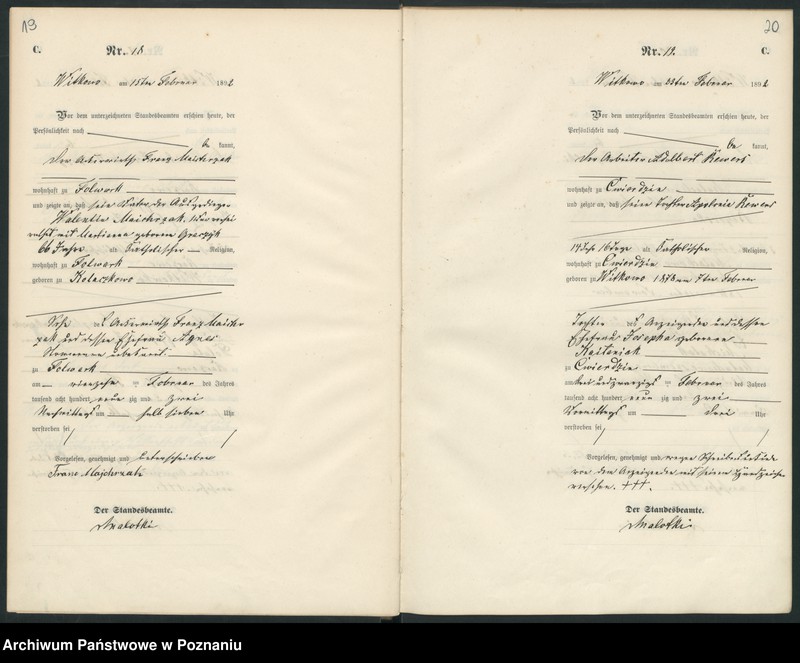 19
C.
Nr. 18.
Witkowo am 15ten Februar 1892
Vor dem unterzeichneten Standesbeamten erschien heute, der
Persönlichkeit nach
be kannt,
Der Ackerwirth Franz Maicherzak
wohnhaft zu Folwark
und zeigte an, daß sein Vater der Ausgedinger
Walentin Maicherzak,
mit Marianna geborene
66 Jahre alt Katholischer Religion,
wohnhaft zu Folwark
geboren zu Kolaczkowo
Sohn des Ackerwirths Franz Maicher
zak und dessen Ehefrau Agnes
zu Folwark
am vierzehn Februar des Jahres
tausend acht hundert neun zig und zwei
Nachmittags um halb sieben Uhr
verstorben sei
Vorgelesen, genehmigt und unterschrieben
Franz Majcherzak
Der Standesbeamte.
20
Nr. 19.
C.
Witkowo am 23ten Februar 1892
Vor dem unterzeichneten Standesbeamten erschien heute, der
Persönlichkeit nach
be kannt,
Der Arbeiter Adelbert Rewers
wohnhaft zu Cwierdzin
und zeigte an, daß seine Tochter Apolonia Rewers
14 Jahr 16 Tage alt Katholischer Religion,
wohnhaft zu Cwierdzin
geboren zu Witkowo 1878 am 7ten Februar
Tochter des Anzeigenden und dessen
Ehefrau Josepha geborene
zu Cwierdzin
am drei und zwanzigs Februar des Jahres
tausend acht hundert neun zig und zwei
Vormittags um drei Uhr
verstorben sei
Vorgelesen, genehmigt und wegen Schreibunkunde
von dem Anzeigenden mit seinem Handzeichen
versehen. +++.
Der Standesbeamte.
Archiwum Państwowe w Poznaniu